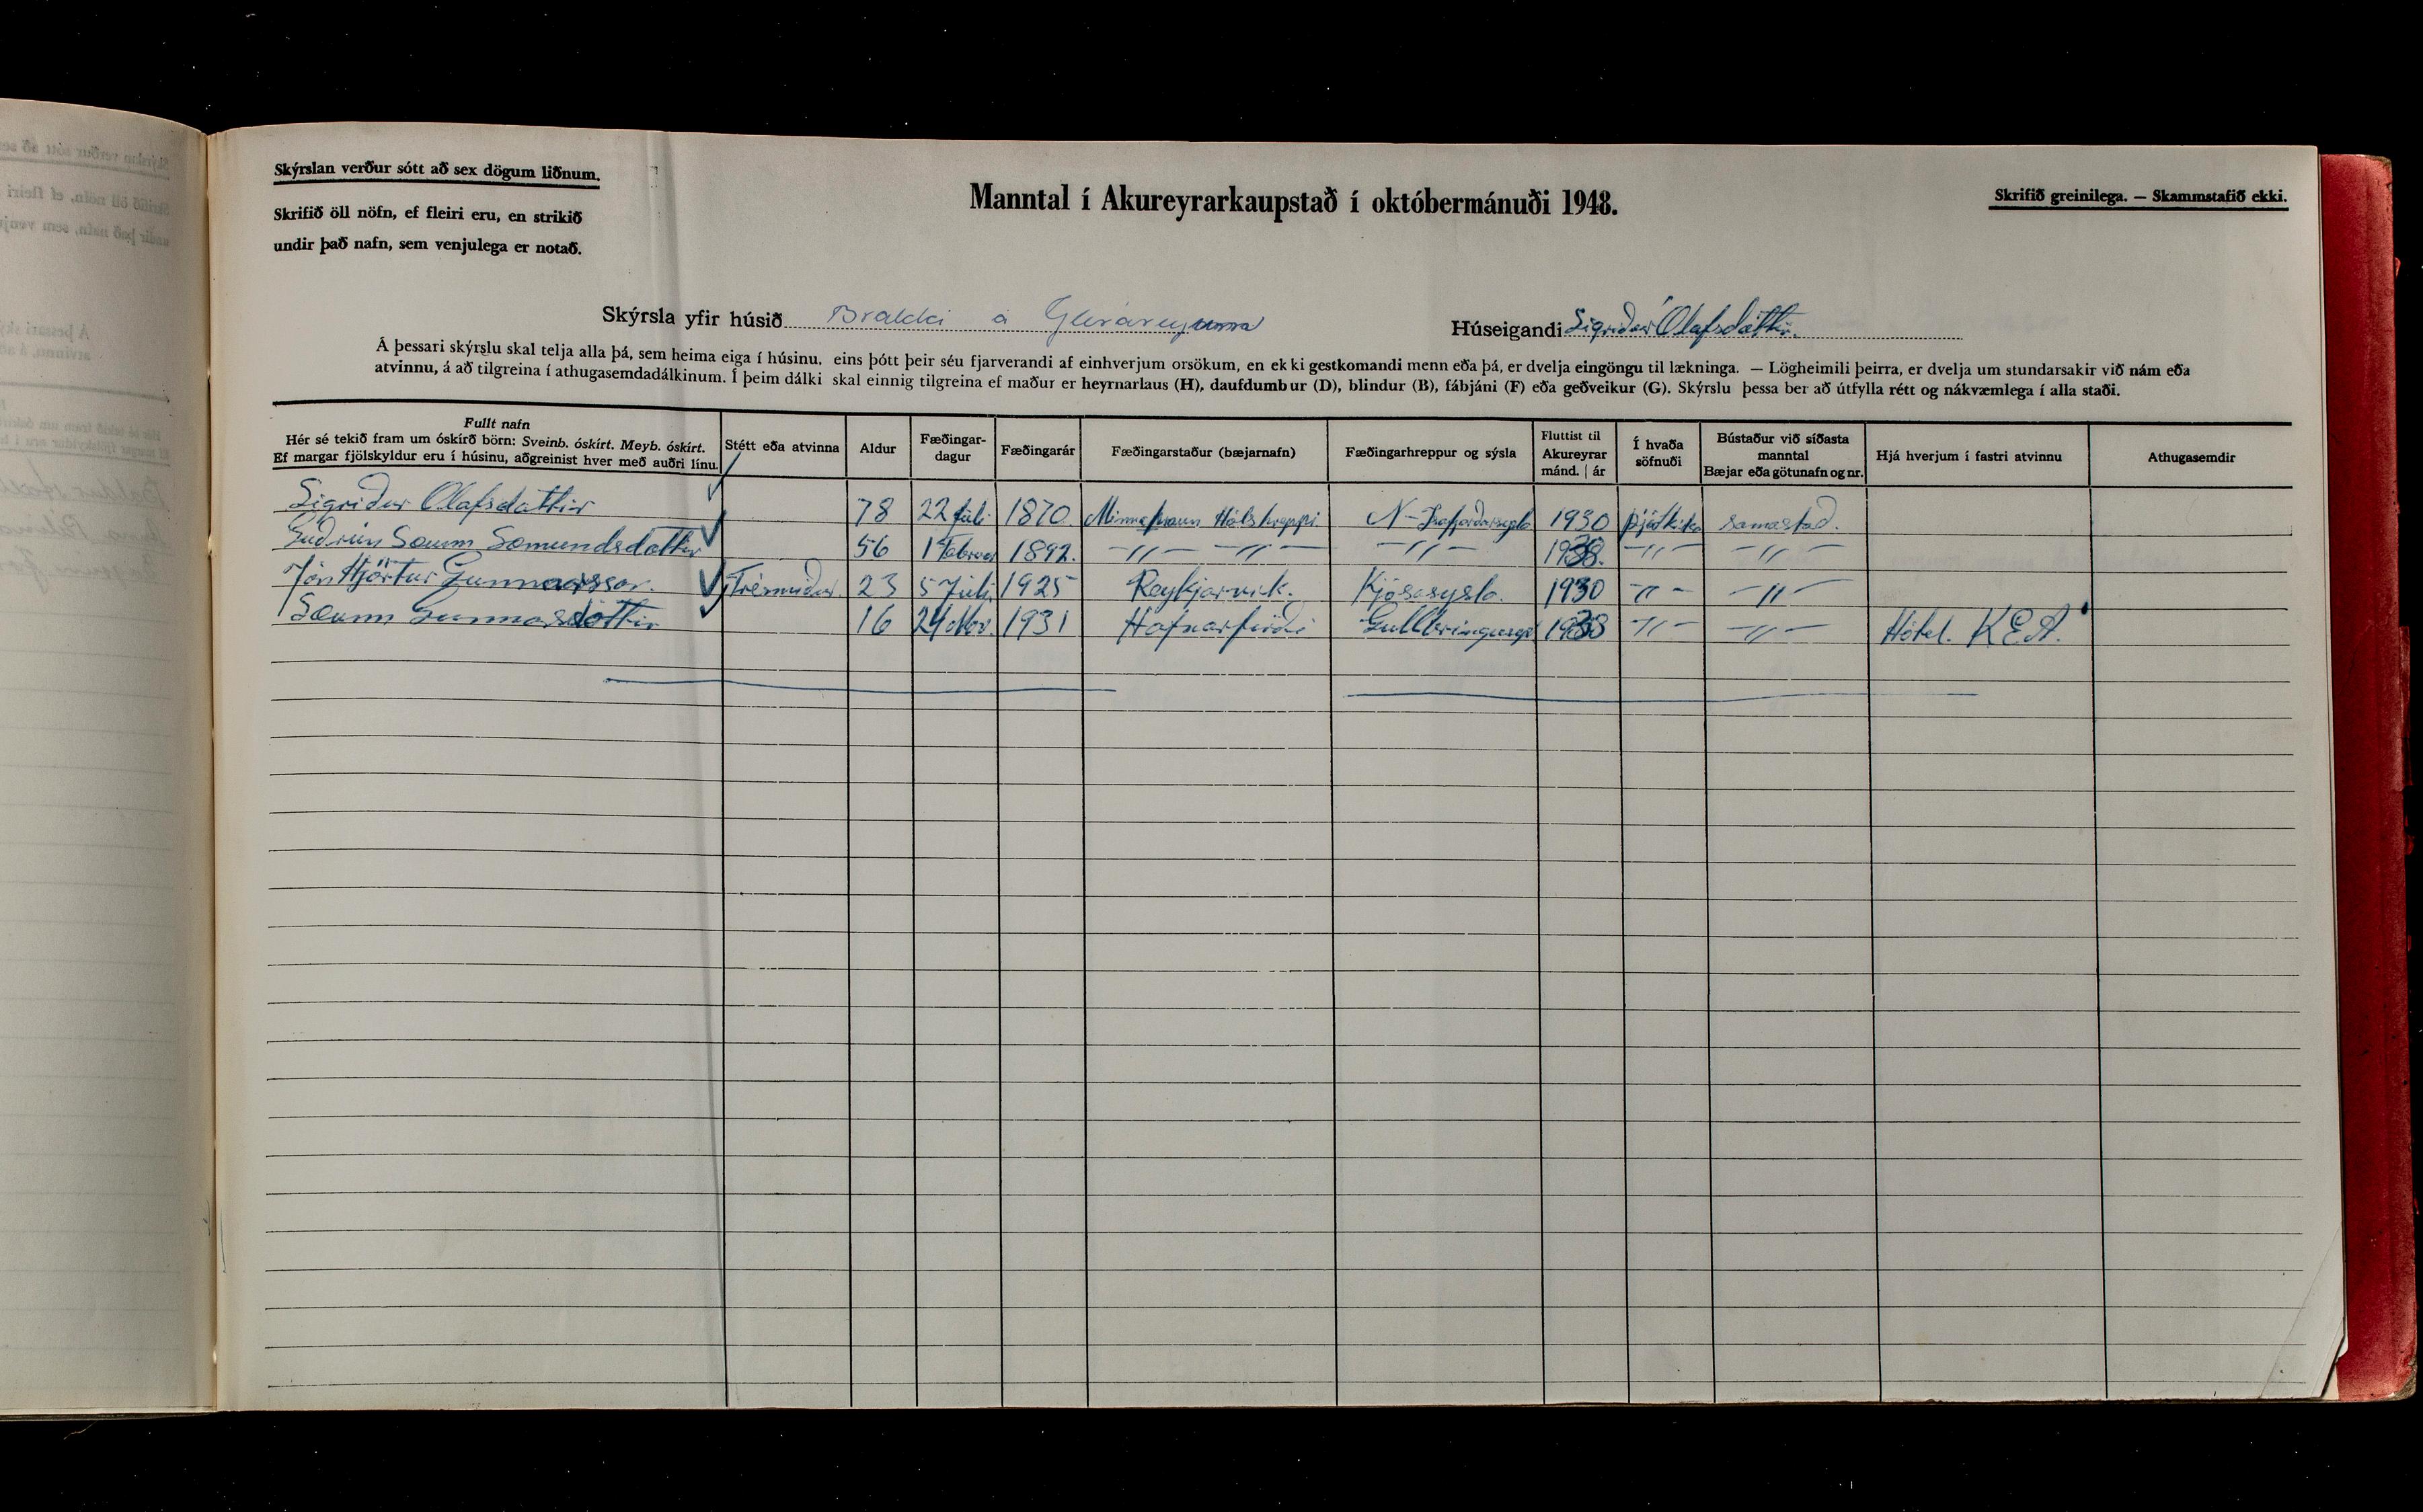 Skýrslan verður sótt að sex dögum liðnum.
Skrifið öll nöfn, ef fleiri eru, en strikið
undir það nafn, sem venjulega er notað.
Manntal í Akureyrarkaupstað í októbermánuði 1948.
Skrifið greinilega. — Skammstafið ekki.
Skýrsla yfir húsið Brakki á Gleráreyrum
Húseigandi Sigríður Ólafsdóttir.
Á þessari skýrslu skal telja alla þá, sem heima eiga í húsinu, eins þótt þeir séu fjarverandi af einhverjum orsökum, en ekki gestkomandi menn eða þá, er dvelja eingöngu til lækninga. — Lögheimili þeirra, er dvelja um stundarsakir við nám eða
atvinnu, á að tilgreina í athugasemdadálkinum. Í þeim dálki skal einnig tilgreina ef maður er heyrnarlaus (H), daufdumbur (D), blindur (B), fábjáni (F) eða geðveikur (G). Skýrslu þessa ber að útfylla rétt og nákvæmlega í alla staði.
Fullt nafn
Hér sé tekið fram um óskírð börn: Sveinb. óskírt. Meyb. óskírt.
Ef margar fjölskyldur eru í húsinu, aðgreinist hver með auðri línu.
Stétt eða atvinna
Aldur
Fæðingar-
dagur
Fæðingarár
Fæðingarstaður (bæjarnafn)
Fæðingarhreppur og sýsla
Fluttist til
Akureyrar
mánd. | ár
Í hvaða
söfnuði
Bústaður við síðasta
manntal
Bæjar eða götunafn og nr.
Hjá hverjum í fastri atvinnu
Athugasemdir
Sigriður Olafsdottir 78 22 Júli 1870. Hólshreppi N-Isafjarðarsysla 1930 þjóðkirkja samastað.
Guðrún Sæunn Sæmundsdottir 56 1 Februar 1892. —〃— —〃— —〃— 1938. —〃— —〃—
Jón Hjörtur Gunnarsson. Trésmiður. 23 5 Júli 1925 Reykjarvik. Kjósasysla. 1930 〃— —〃—
Sæunn Gunnarsdóttir 16 24 Nov. 1931 Hafnarfirði Gullbringusysl 1938 —〃— —〃— Hótel. KEA.